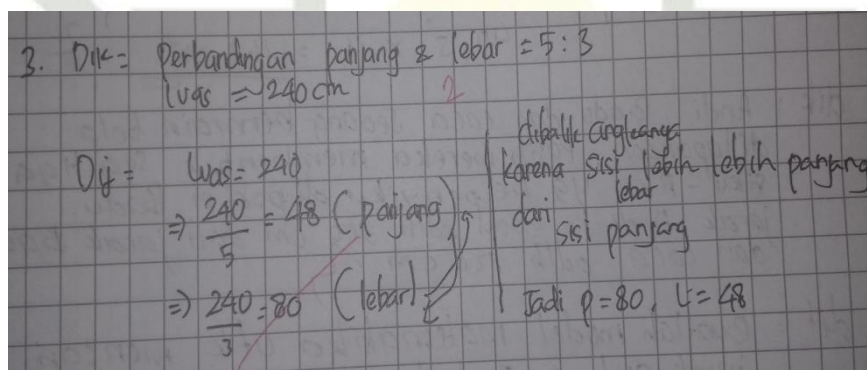 3. Dik = Perbandingan panjang & lebar = 5 : 3
luas = 240 cm
2
Dij = luas = 240
⇒ 240/5 = 48 (panjang)
⇒ 240/3 = 80 (lebar)
dibalik angkanya
karena sisi lebih lebih panjang
lebar
dari sisi panjang
Jadi p = 80, L = 48